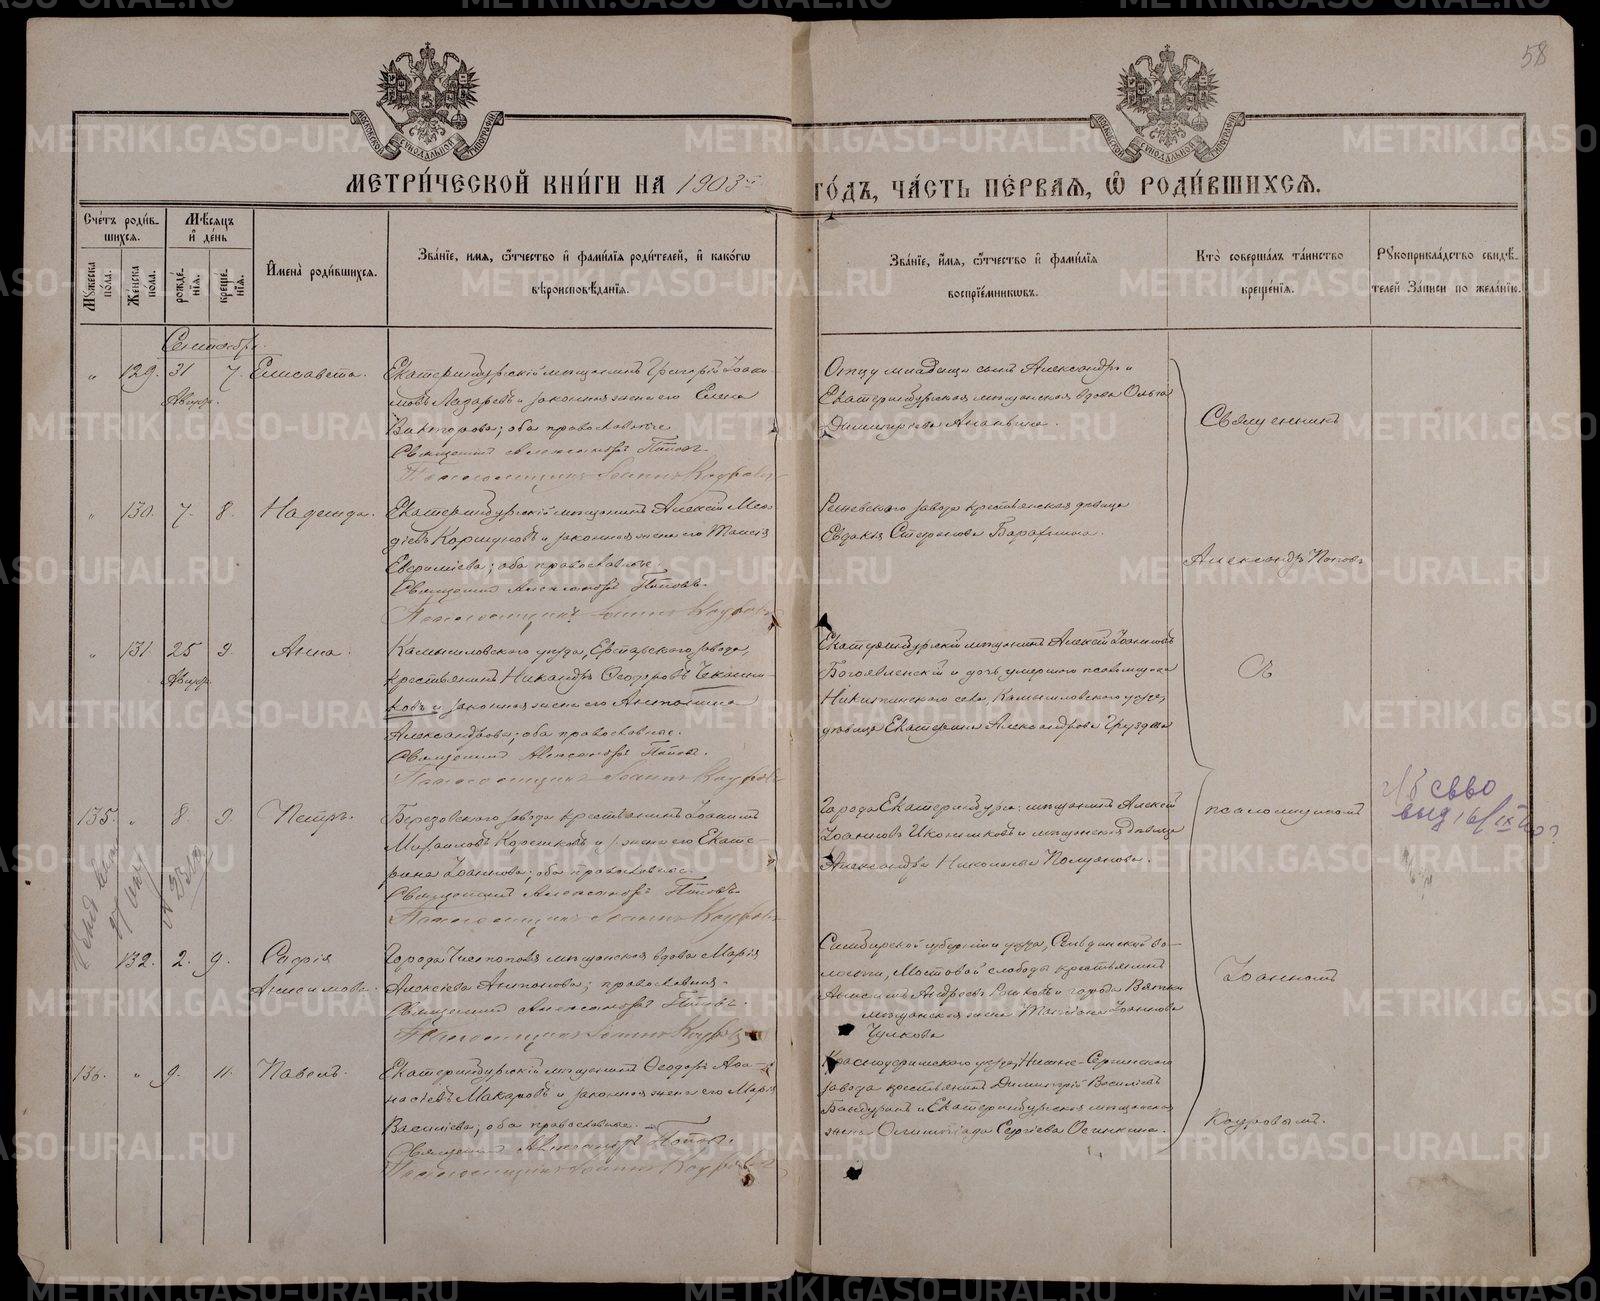 58
МЕТРИ́ЧЕСКОЙ КНИ́ГИ НА 1903й ГО́ДЪ, ЧА́СТЬ ПЕ́РВАЯ, Ѡ҆ РОДИ́ВШИХСЯ.
Сче́тъ роди́в-
шихся.
Мѣ́сяцъ
и҆ де́нь
Мꙋжеска по́ла.
Же́нска по́ла.
рожде́нїя.
креще́нїя.
И҆мена̀ роди́вшихся.
Зва́нїе, и́мя, ѻ҆́тчество и҆ фами́лїя роди́телей, и҆ како́гѡ
вѣроисповѣ́данїя.
Зва́нїе, и҆́мя, ѻ҆́тчество и҆ фами́лїя
воспрїе́мникѡвъ.
Кто̀ соверша́лъ та́инство
креще́нїя.
Рꙋкоприкла́дство свидѣ́-
телей за́писи по жела́нїю.
Сентябрь.
" 129. 31 7. Елисавета.
Август.
Екатеринбургскій мѣщанинъ Григорій Іоаки-
мовъ Лазаревъ и законная жена его Елена
Викторова; оба православные
Священникъ Александръ Поповъ
Псаломщикъ Іоаннъ Коуровъ
Отцу младенца сынъ Александръ и
Екатеринбургская мѣщанская вдова Ольга
Димитріева Ананьина.
Священникъ
" 130. 7. 8. Надежда.
Екатеринбургскій мѣщанинъ Алексій Мео-
діевъ Коршуновъ и законная жена его Таисія
Евѳиміева; оба православные.
Священникъ Александръ Поповъ.
Псаломщикъ Іоаннъ Коуровъ
Режевского завода крестьянская дѣвица
Евдокія Стефанова Барахнина.
Александръ Поповъ
" 131 25 9. Анна.
Август.
Камышловского уѣзда, завода,
крестьянинъ Никандръ Ѳеодоровъ
ковъ и законная жена его Антонина
Александрова; оба православные.
Священникъ Александръ Поповъ.
Псаломщикъ Іоаннъ Коуровъ
Екатеринбургскій мѣщанинъ Алексій Іоанновъ
Богоявленскій и дочь умершаго псаломщика
Никитинского села, Камышловского уѣзда,
дѣвица Екатерина Александрова Груздева
съ
135. " 8. 9. Петръ.
Березовского завода крестьянинъ Іоаннъ
Михаиловъ и з. жена его Екате-
рина Іоаннова; оба православные.
Священникъ Александръ Поповъ
Псаломщикъ Іоаннъ Коуровъ
Города Екатеринбурга: мѣщанинъ Алексій
Іоанновъ Иконниковъ и мѣщанская дѣвица
Александра Николаева Полуянова.
псаломщикомъ
св-во
выд 16/IX
132. 2. 9. Софія
Анисимова.
Города Чистополя мѣщанская вдова Марія
Алексіева Антонова; православная.
Священникъ Александръ Поповъ.
Псаломщикъ Іоаннъ Коуровъ
Симбирской губерніи и уѣзда, во-
лости, Мостовой слободы крестьянинъ
Анисимъ Андреевъ и города Вятки
мѣщанская жена Татіана Іоаннова
Чулкова
Іоанномъ
136. " 9. 11. Павелъ.
Екатеринбургскій мѣщанинъ Ѳеодоръ Аѳа-
насіевъ Макаровъ и законная жена его Марія
Василіева; оба православные.
Священникъ Александръ Поповъ.
Псаломщикъ Іоаннъ Коуровъ
Красноуфимского уѣзда, Нижне-Сергинского
завода крестьянинъ Димитрій Василіевъ
Бандуринъ и Екатеринбургская мѣщанская
жена Олимпіада Сергіева Осипкина.
Коуровымъ.